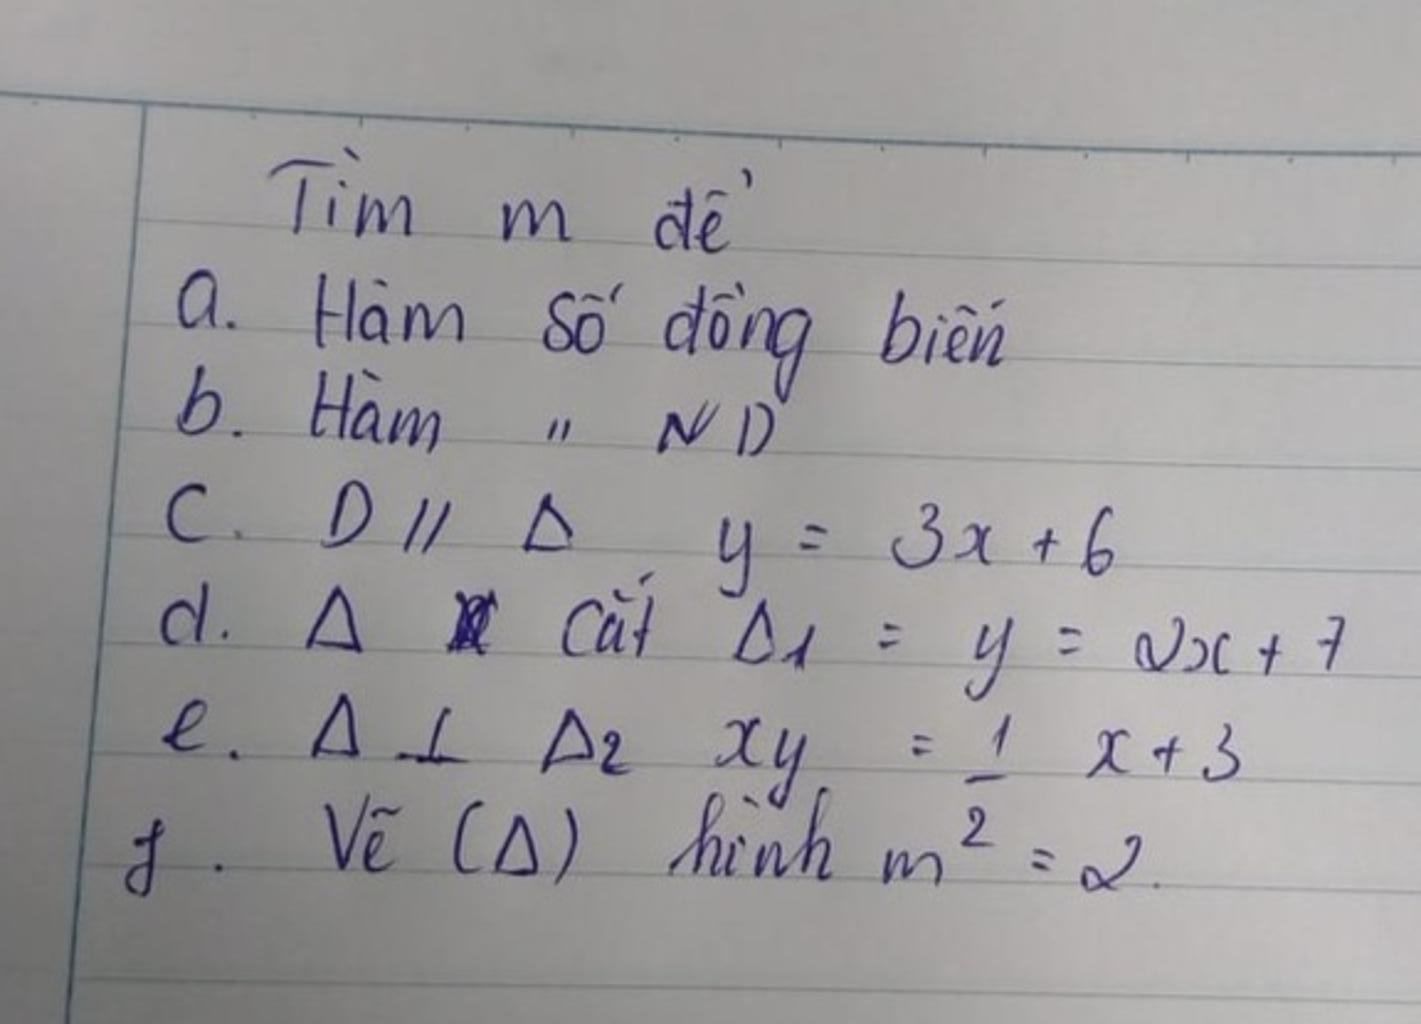 Tìm m để
a. Hàm số đồng biến
b. Hàm " ND
c. D // Δ y = 3x + 6
d. Δ cắt Δ1 = y = 2x + 7
e. Δ ⊥ Δ2 xy = 1/2 x + 3
f. Vẽ (Δ) hình m = 2.